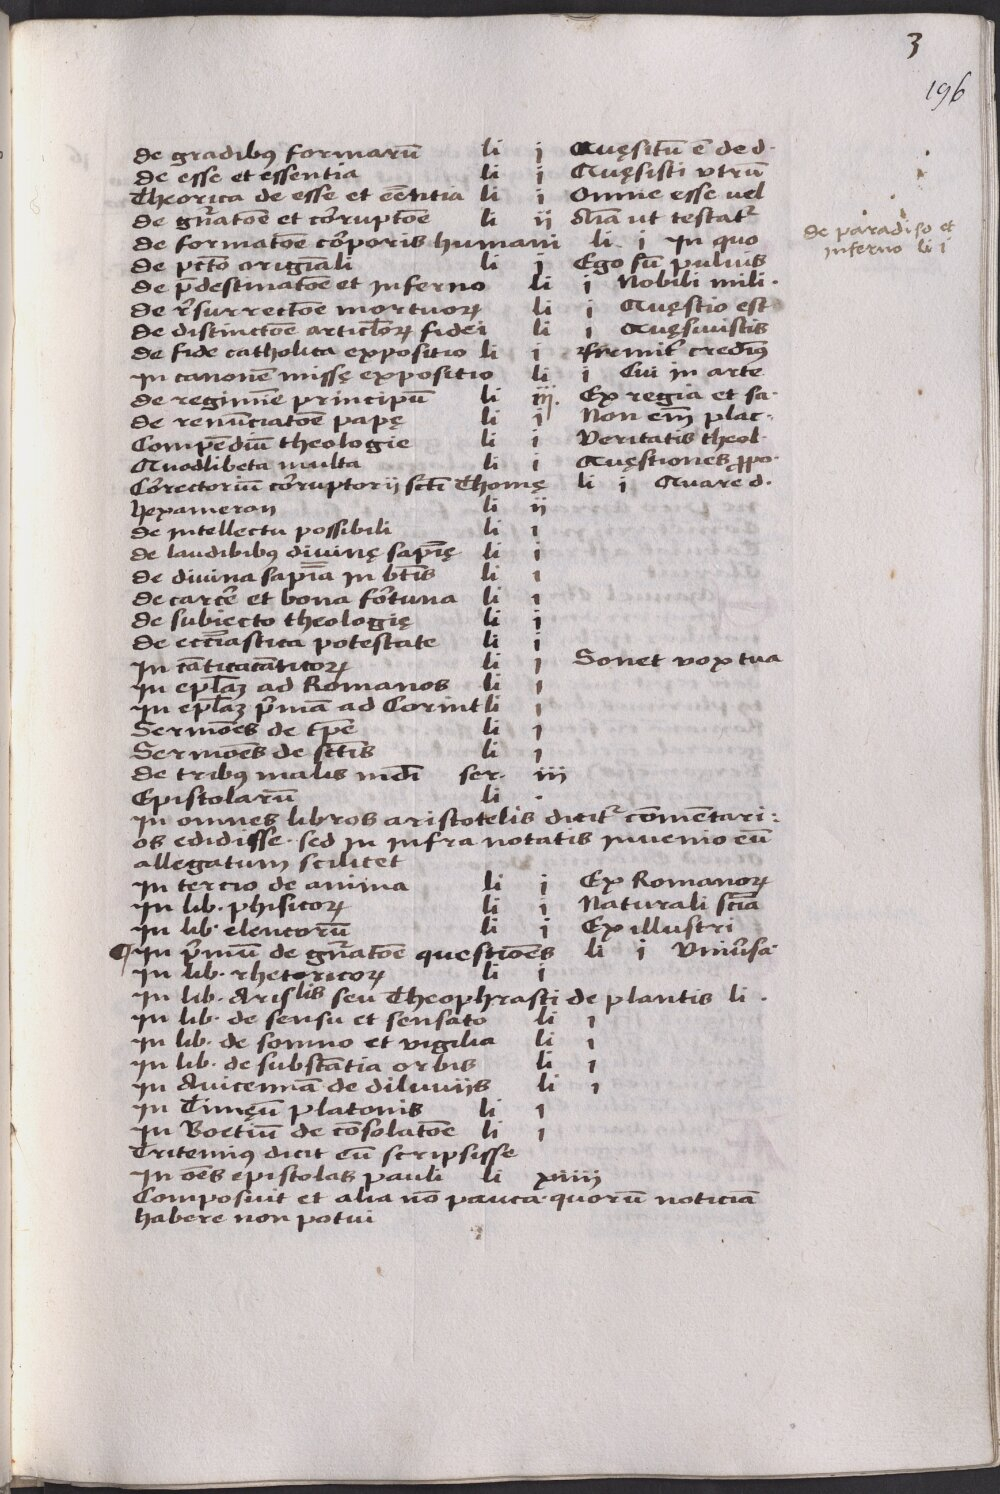 3
196
de gradibꝰ formarū li j Quęsitū ē de d.
de esse et essentia li j Quęsisti vtrū
Theorica de esse et eēntia li j Omne esse uel
de gn̄atoē et cōruptoē li ij aīa ut testatᷣ
de formatoē cōrporis humani li. j In quo
de pctō originali li j Ego sū puluis
de p̄destinatoē et inferno li j Nobili mili.
de p̄destinatoē
de r̄surrectoē mortuoꝝ li j Quęstio est
de distinctoē articloꝝ fidei li j Quęsiuistis
de fide catholica expositio li j Firmit̄ credimꝰ
In canonē missę expositio li j Cui in arte
de regimīe principū li iij. Ex regia et sa.
de renūciatoē papę li j Non em̄ plac.
Compēdiū theologie li j Veritatis theol.
Quodlibeta multa li j Quęstiones ꝓpo.
Cōrectoriū cōruptorij sctī Thomę li j Quare d.
hexameron li ij
de intellectu possibili li j
de laudibibꝰ diuinę sapīę li j
de diuina sapīa in btīs li j
de carcē et bona fōrtuna li j
de subiecto theologię li j
de ecc̄iastica potestate li j
In cāticacāticoꝝ li j Sonet vox tua
In ep̄laꝫ ad Romanos li j
In ep̄laꝫ p̄mā ad Corint li j
Sermoēs de tp̄e li j
Sermoēs de sctīs li j
de tribꝰ malis mdī ser. iij
Epistolarū li .
In omnes libros aristotelis dicitᷣ cōmētari:
os edidisse. sed in infra notatis inuenio eū
allegatum scilicet
In tercio de anima li j Ex Romanoꝝ
In lib. phisicoꝝ li j Naturali scīa
In lib. elencorū li j Ex illustri
In p̄mū de gn̄atoē questioēs li j Vniūsa
In lib. rhetoricoꝝ li j
In lib. Arislis seu Theophrasti de plantis li .
In lib. de sensu et sensato li j
In lib. de somno et vigilia li j
In lib. de substātia orbis li j
In Auicennā de diluuijs li j
In Timęū platonis li j
In Boetiū de cōsolatoē li j
Tritemiꝰ dicit eū scripsisse
In oēs epistolas pauli li xiiij
Composuit et alia nō pauca. quorū noticiā
habere non potui
de paradiso et
inferno li i